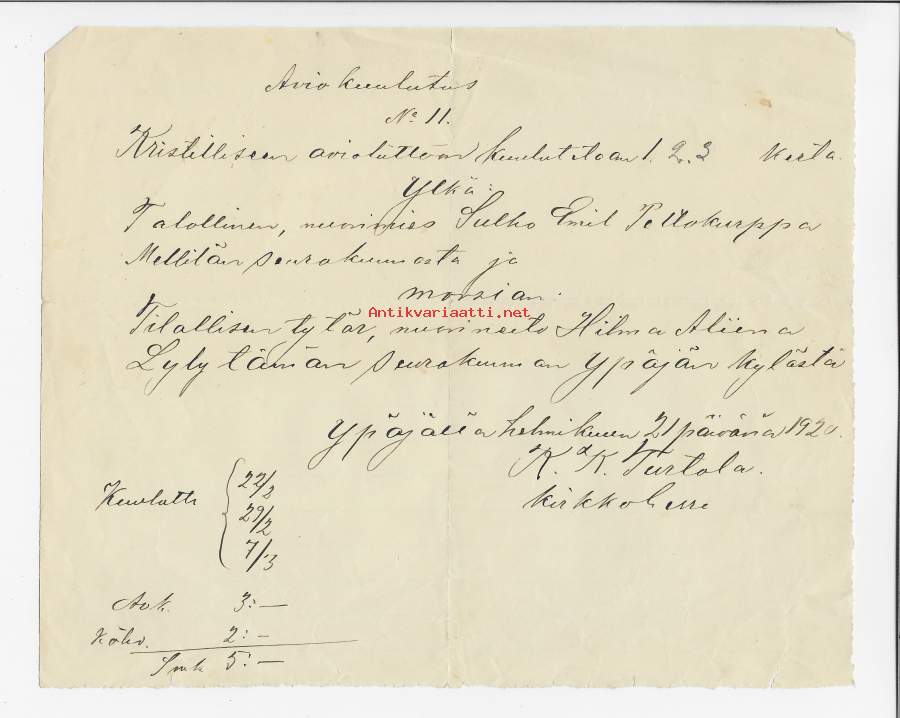 Aviokuulutus
No 11.
Kristilliseen avioliittoon kuulutetaan 1. 2. 3 kerta.
Ylkä:
Talollinen, nuorimies Sulho Emil Peltokurppa
Mellilän seurakunnasta ja
morsian:
Antikvariaatti.net
Tilallisen tytär, nuorineito Hilma Aliina
Lyly tämän seurakunnan Ypäjän kylästä
Ypäjällä helmikuun 21 päivänä 1920.
K. K. Turtola.
kirkkoherra
Kuulutti
22/2
29/2
7/3
Avk. 3:—
2:—
Smk 5:—